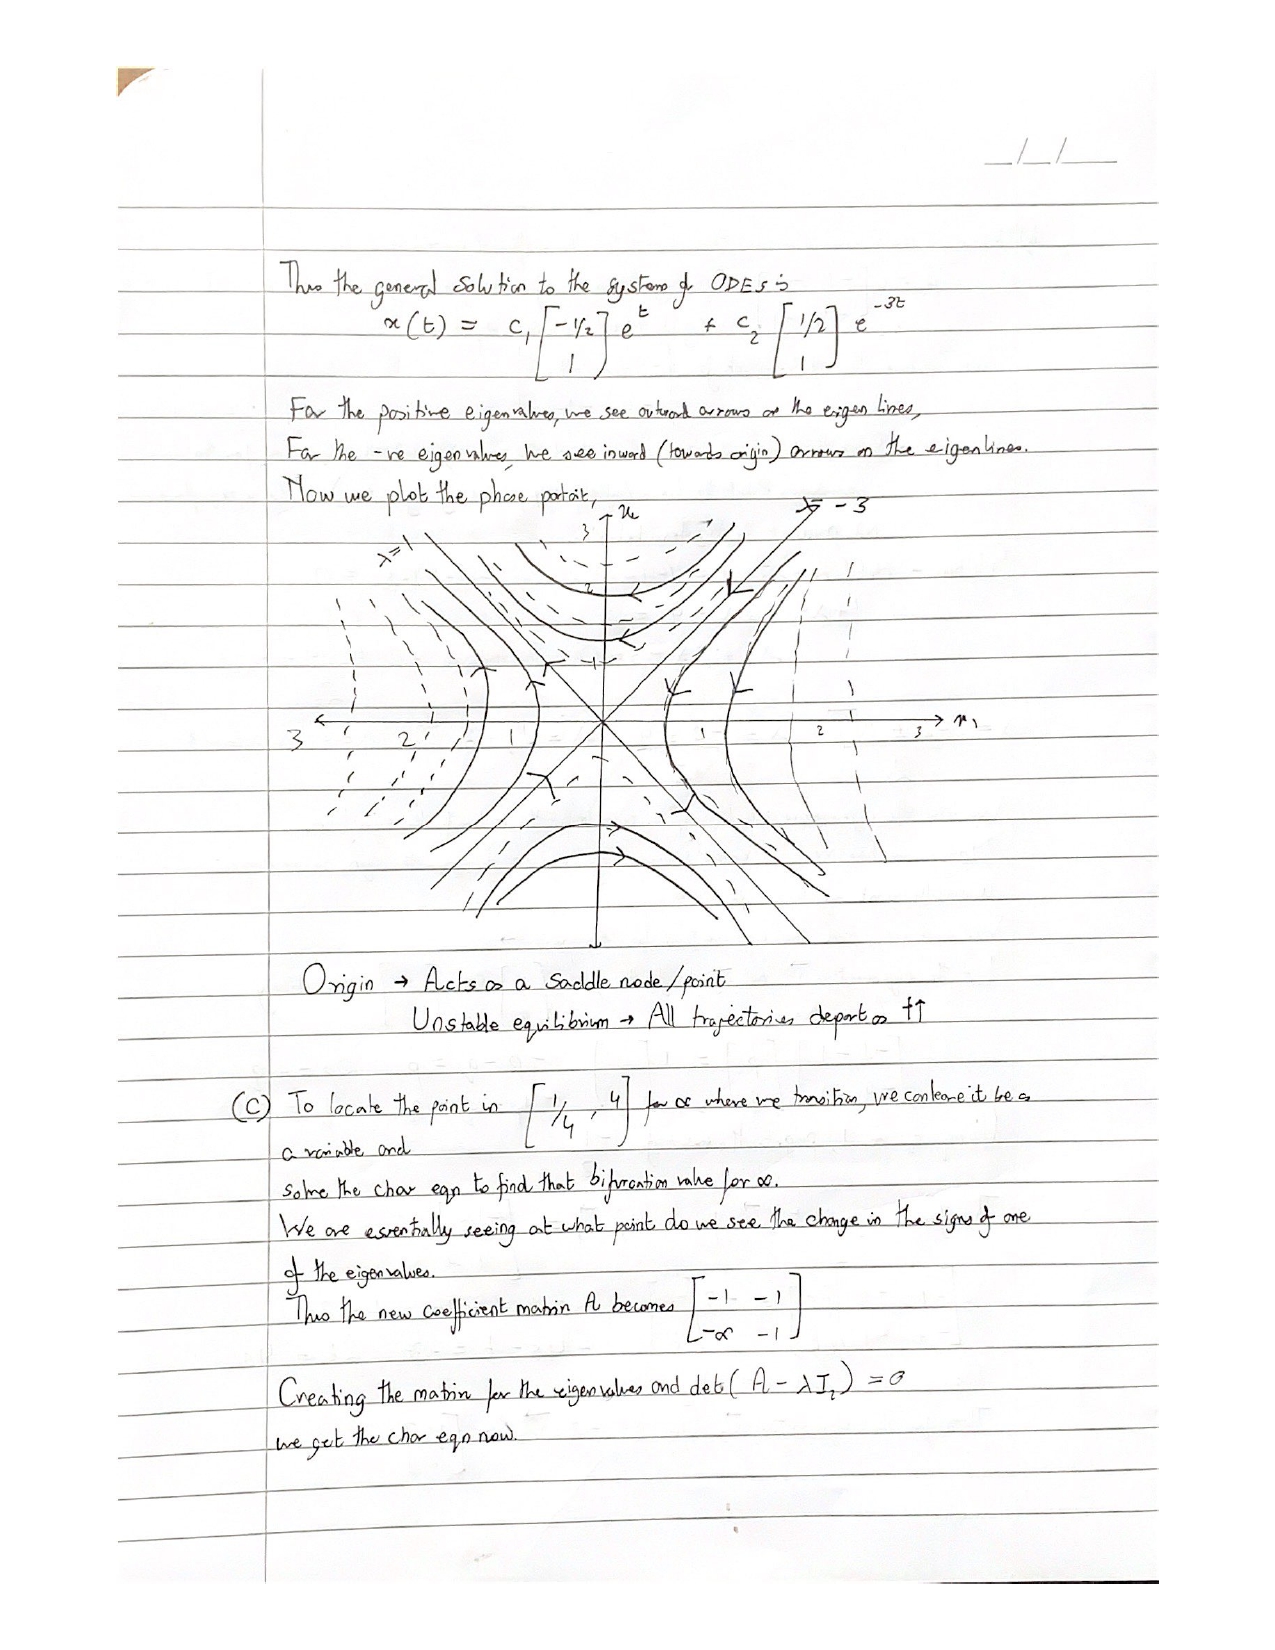 _/_/__
Thus the general solution to the system of ODEs is
x(t) = c₁ [-1/2 1] e^t + c₂ [1/2 1] e^-3t
For the positive eigenvalues, we see outward arrows on the eigen lines,
For the -ve eigenvalues, we see inward (towards origin) arrows on the eigenlines.
Now we plot the phase portait,
x₂
λ=1
λ=-3
3
2
3 2 1 1 2 3 x₁
Origin → Acts as a saddle node/point
Unstable equilibrium → All trajectories depart as t↑
(C) To locate the point in [1/4, 4] for α where we transition, we can leave it be as
a variable and
solve the char eqn to find that bifurcation value for α.
We are essentially seeing at what point do we see the change in the signs of one
of the eigenvalues.
Thus the new coefficient matrix A becomes [-1 -1 -α -1]
Creating the matrix for the eigenvalues and det(A - λI₂) = 0
we get the char eqn now.